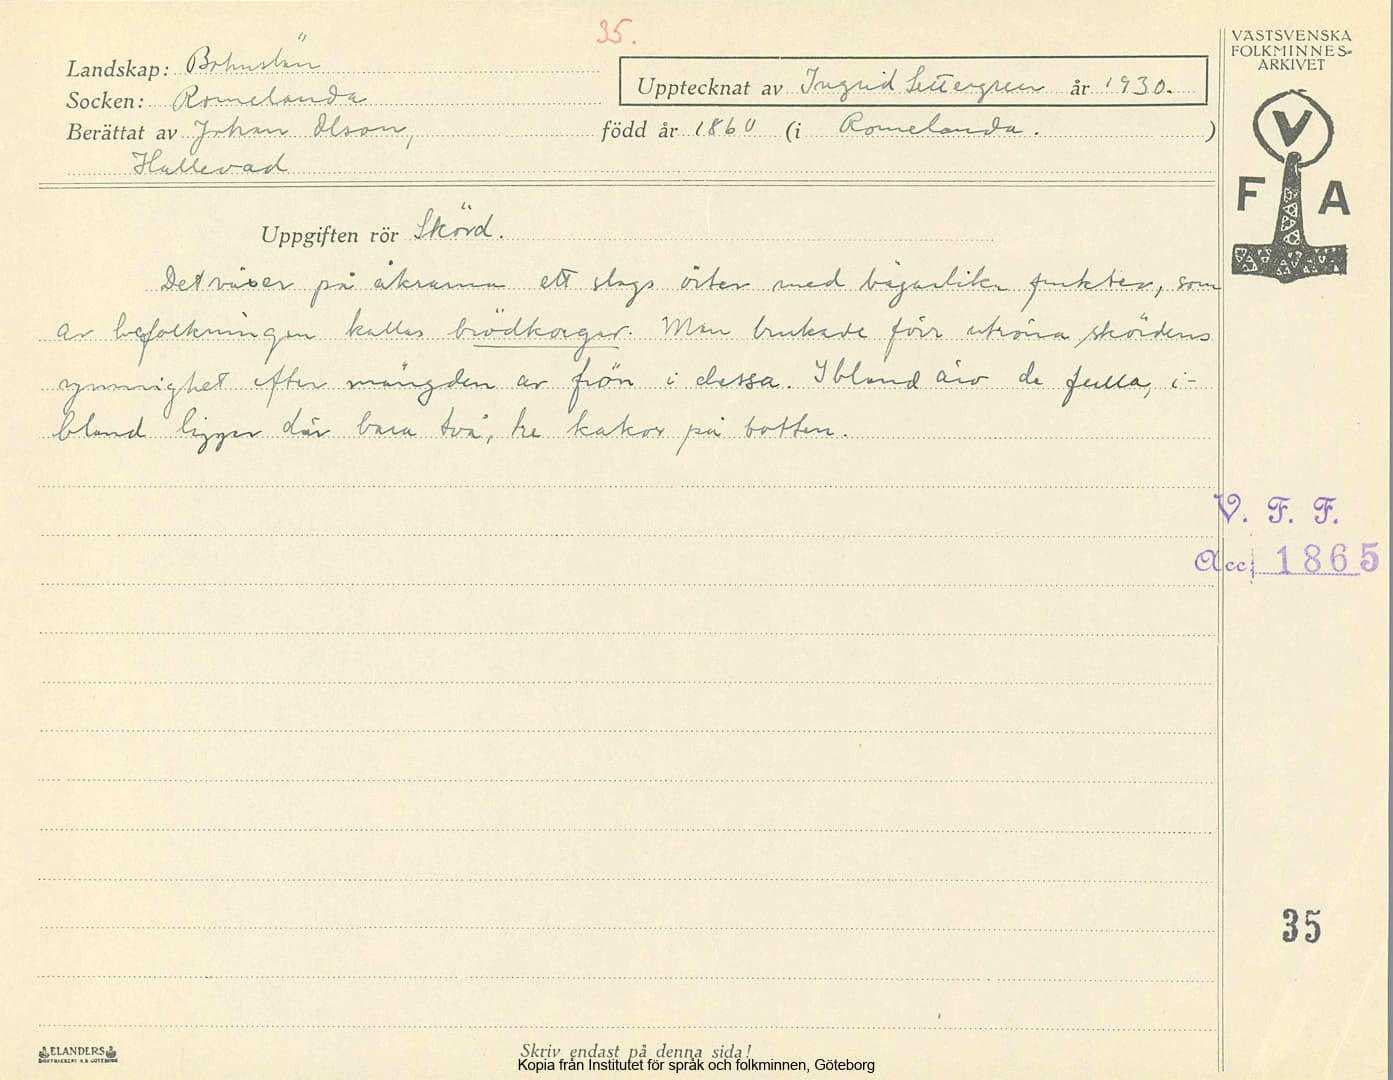 35.
Landskap: Bohuslän
Socken: Romelanda
Upptecknat av Ingrid Settergren år 1930.
Berättat av Johan Olson, född år 1860 (i Romelanda.)
Hallevad
Uppgiften rör Skörd.
Det växer på åkrarna ett slags örter med bägarlika frukter, som
av befolkningen kallas brödkorgar. Man brukade förr utröna skördens
rymmighet efter mängden av frön i dessa. Ibland äro de fulla, i-
bland ligger där bara två, tre kakor på botten.
VÄSTSVENSKA
FOLKMINNES-
ARKIVET
V
F A
V. F. F.
Acc. 1865
35
ELANDERS
BOKTRYCKERI A.B. GÖTEBORG
Skriv endast på denna sida!
Kopia från Institutet för språk och folkminnen, Göteborg